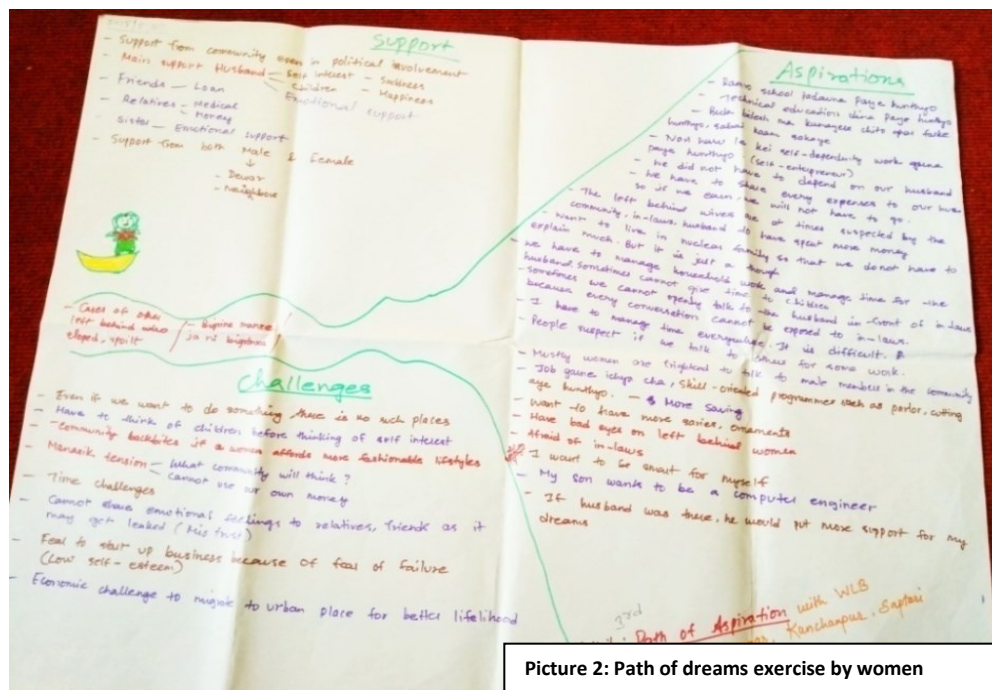 Support
- Support from community even in political involvement
- Main support Husband - Self interest - Sadness
Children - Happiness
Emotional support
- Friends - Loan
- Relatives - Medical
- Money
- Sister - Emotional support
- Support from both Male & Female
- Dewar
- Neighbours
- Cases of other
left behind who
eloped, spoilt
- bigrine manxe
ja ni bigrinxa
Challenges
- Even if we want to do something there is no such places
- Have to think of children before thinking of self interest
- Community backbites if a women affords more fashionable lifestyles
- Manasik tension - What community will think?
- Cannot use our own money
- Time challenges
- Cannot share emotional feelings to relatives, friends as it
may get leaked (Mis trust)
- Fear to start up business because of fear of failure
(Low self-esteem)
- Economic challenge to migrate to urban place for better lifelihood
Aspirations
- Ramro school padauna paye hunthyo
- Technical education dina paye hunthyo
- Bada bidesh ma kamayera chito ghar farke
hunthyo, sabai kaam sakaye
- Nari haru le kei self-dependnity work garna
paye hunthyo. (self-entrepreneur)
- We did not have to depend on our husband
- We have to share every expenses to our
so if we earn, we will not have to go.
- The left behind wives are at times suspected by the
community, in-laws, husband to have spent more money
- Want to live in nuclear family so that we donot have to
explain much. But it is just a though
- We have to manage household work and manage time for the
husband. Sometimes cannot give time to children
- Sometimes we cannot openly talk to the husband in-front of in laws
because every conversation cannot be exposed to in-laws.
- I have to manage time everywhere. It is difficult.
- People suspect if we talk to others for some work.
- Mostly women are frightend to talk to male members in the community
- Job garne ichya cha, skill-oriented programmes such as parlor, cutting
aye hunthyo. - More Saving
- Want to have more saries, ornaments
- Have bad eyes on left behind women
- Afraid of in-laws
- I want to be smart for myself
- My son wants to be a computer engineer
- If husband was there, he would put more support for my
dreams
3rd
Path of Aspiration with WLB
Kanchanpur, Saptari
Picture 2: Path of dreams exercise by women